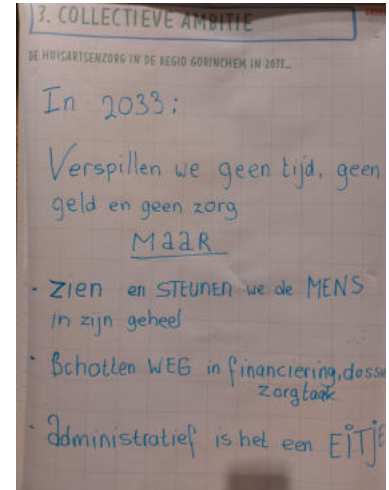 3. COLLECTIEVE AMBITIE
DE HUISARTSENZORG IN DE REGIO GORINCHEM IN 2033...
In 2033:
Verspillen we geen tijd, geen
geld en geen zorg
MAAR
- Zien en STEUNEN we de MENS
in zijn geheel
- Schotten WEG in financiering, dossi
zorgtaak
- administratief is het een EITJE